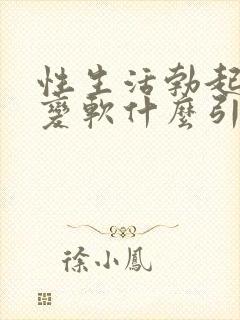 性生活勃起
變軟什麼引
徐小鳳